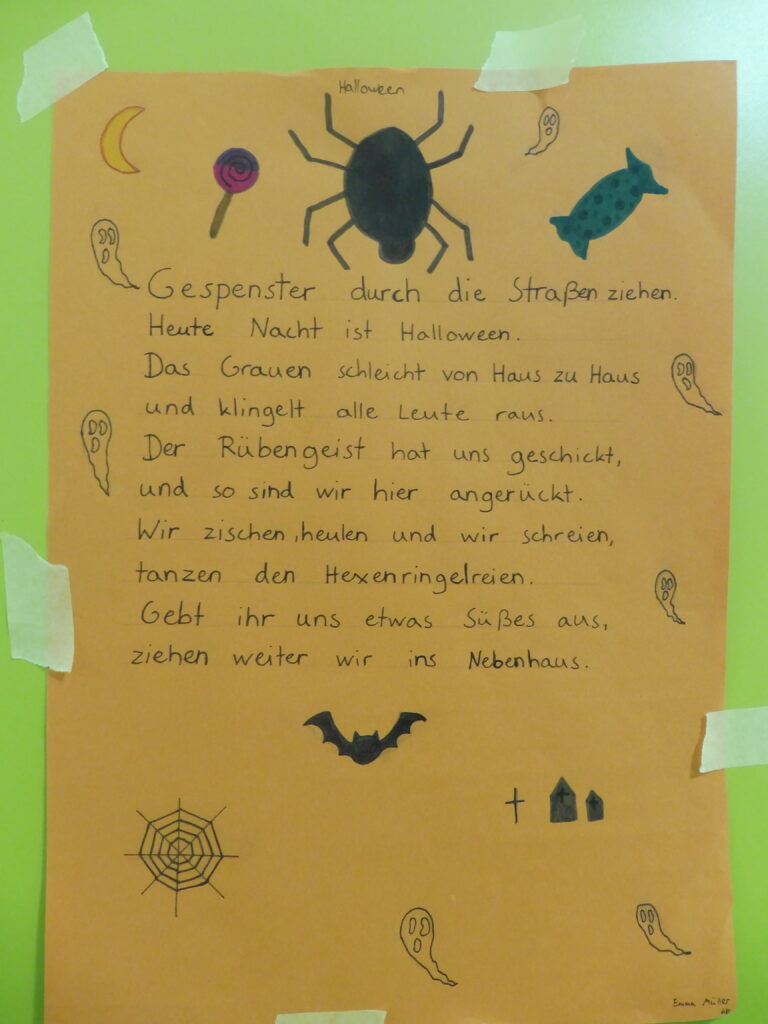 Halloween
Gespenster durch die Straßen ziehen.
Heute Nacht ist Halloween.
Das Grauen schleicht von Haus zu Haus
und klingelt alle Leute raus.
Der Rübengeist hat uns geschickt,
und so sind wir hier angerückt.
Wir zischen, heulen und wir schreien,
tanzen den Hexenringelreien.
Gebt ihr uns etwas Süßes aus,
ziehen weiter wir ins Nebenhaus.
Emma Müller